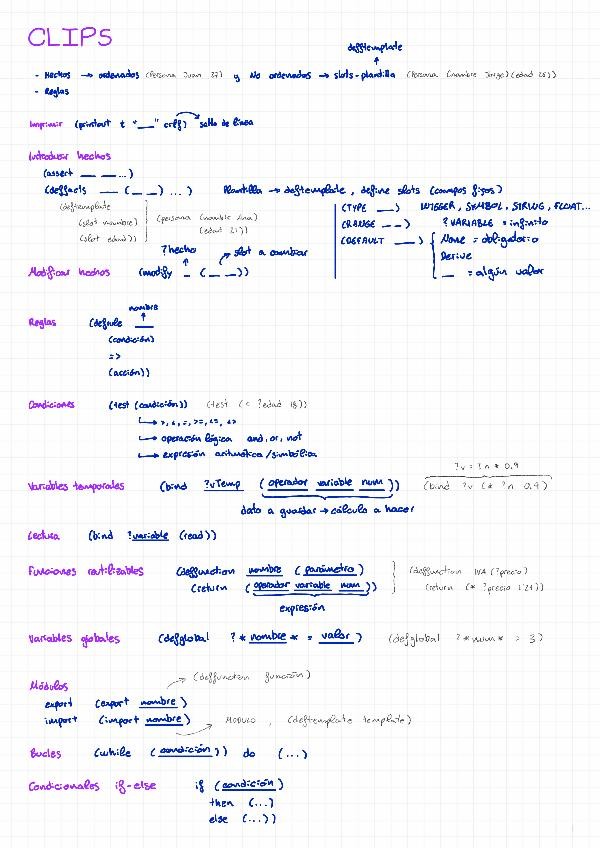 CLIPS
deftemplate
- Hechos → ordenados (Persona Juan 27) y No ordenados → slots-plantilla (Persona (nombre Jorge)(edad 25))
- Reglas
Imprimir (printout t "__" crlf) salto de línea
Introducir hechos
(assert __ __ ...)
(deffacts __ (__ __) ...) Plantilla → deftemplate, define slots (campos fijos)
(deftemplate
(slot nombre)
(slot edad))
(persona (nombre Ana)
(edad 21))
(TYPE __) INTEGER, SYMBOL, STRING, FLOAT...
(RANGE _ _) ?VARIABLE = infinito
(DEFAULT __) None = obligatorio
Derive
__ = algún valor
?hecho slot a cambiar
Modificar hechos (modify _ (_ _))
nombre
Reglas (defrule __
(condición)
=>
(acción))
Condiciones (test (condición)) (test (< ?edad 18))
→ >, <, =, >=, <=, <>
→ operación lógica and, or, not
→ expresión aritmética/simbólica
?v = ?n * 0.9
Variables temporales (bind ?vTemp (operador variable num)) (bind ?v (* ?n 0.9)
dato a guardar → cálculo a hacer
Lectura (bind ?variable (read))
Funciones reutilizables (deffunction nombre (parámetro) (deffunction IVA (?precio)
(return (operador variable num)) (return (* ?precio 1'21))
expresión
Variables globales (defglobal ?*nombre* = valor) (defglobal ?*num* = 3)
(deffunction función)
Módulos
export (export nombre)
import (import nombre) MODULO, (deftemplate template)
Bucles (while (condición)) do (...)
Condicionales if-else if (condición)
then (...)
else (...))